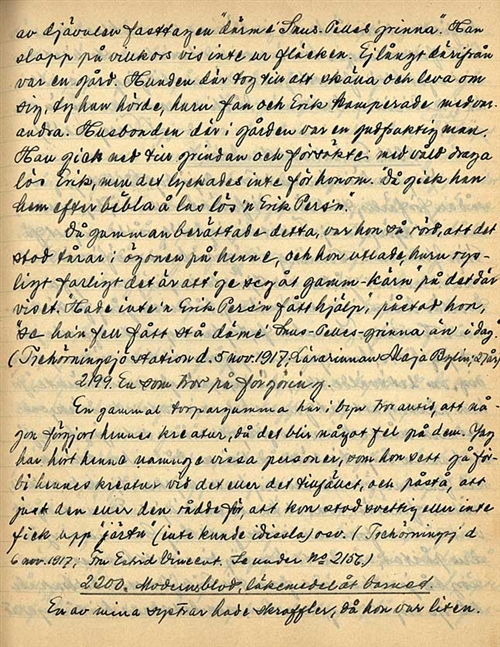 av djävulen fasttagen "därmé Snus-Pelles grinna". Han
slapp på villkors vis inte ur fläcken. Ej långt därifrån
var en gård. Hunden där tog till att skälla och leva om
sig, ty han hörde, huru fan och Erik kamperade med var-
andra. Husbonden där i gården var en gudfruktig man.
Han gick ned till grindan och försökte med våld draga
lös Erik, men det lyckades inte för honom. Då gick han
hem efter bibla å las lös'n Erik Pers'n.
Då gumman berättade detta, var hon så rörd, att det
stod tårar i ögonen på henne, och hon utlade, huru rys-
ligt farligt det är att "ge seg åt gamm-kärn" på det där
viset. Hade inte'n Erik Pers'n fått hjälp", påstod hon,
"sa ha'n fell fått stå därmé Snus-Pelles-grinna än i dag."
(Trehörningsjö station d. 5 nov. 1917, Lärarinnan Maja Bylin, 27 år)
2199. En som tror på förgöring.
En gammal torpargumma här i byn tror antis, att nå-
gon förgjort hennes kreatur, då det blir något fel på dem. Jag
har hört henne namnge vissa personer, som hon sett gå för-
bi hennes kreatur vid det eller det tillfället, och påstå, att
just den eller den rådde för, att kon stod svettig eller inte
fick upp "järtu" (inte kunde idissla) osv. (Trehörningsj d
6 nov. 1917, Fru Estrid Vincent. Se under № 2156.)
2200. Modernsblod, läkemedel åt barnet.
En av mina systrar hade skroffler, då hon var liten.